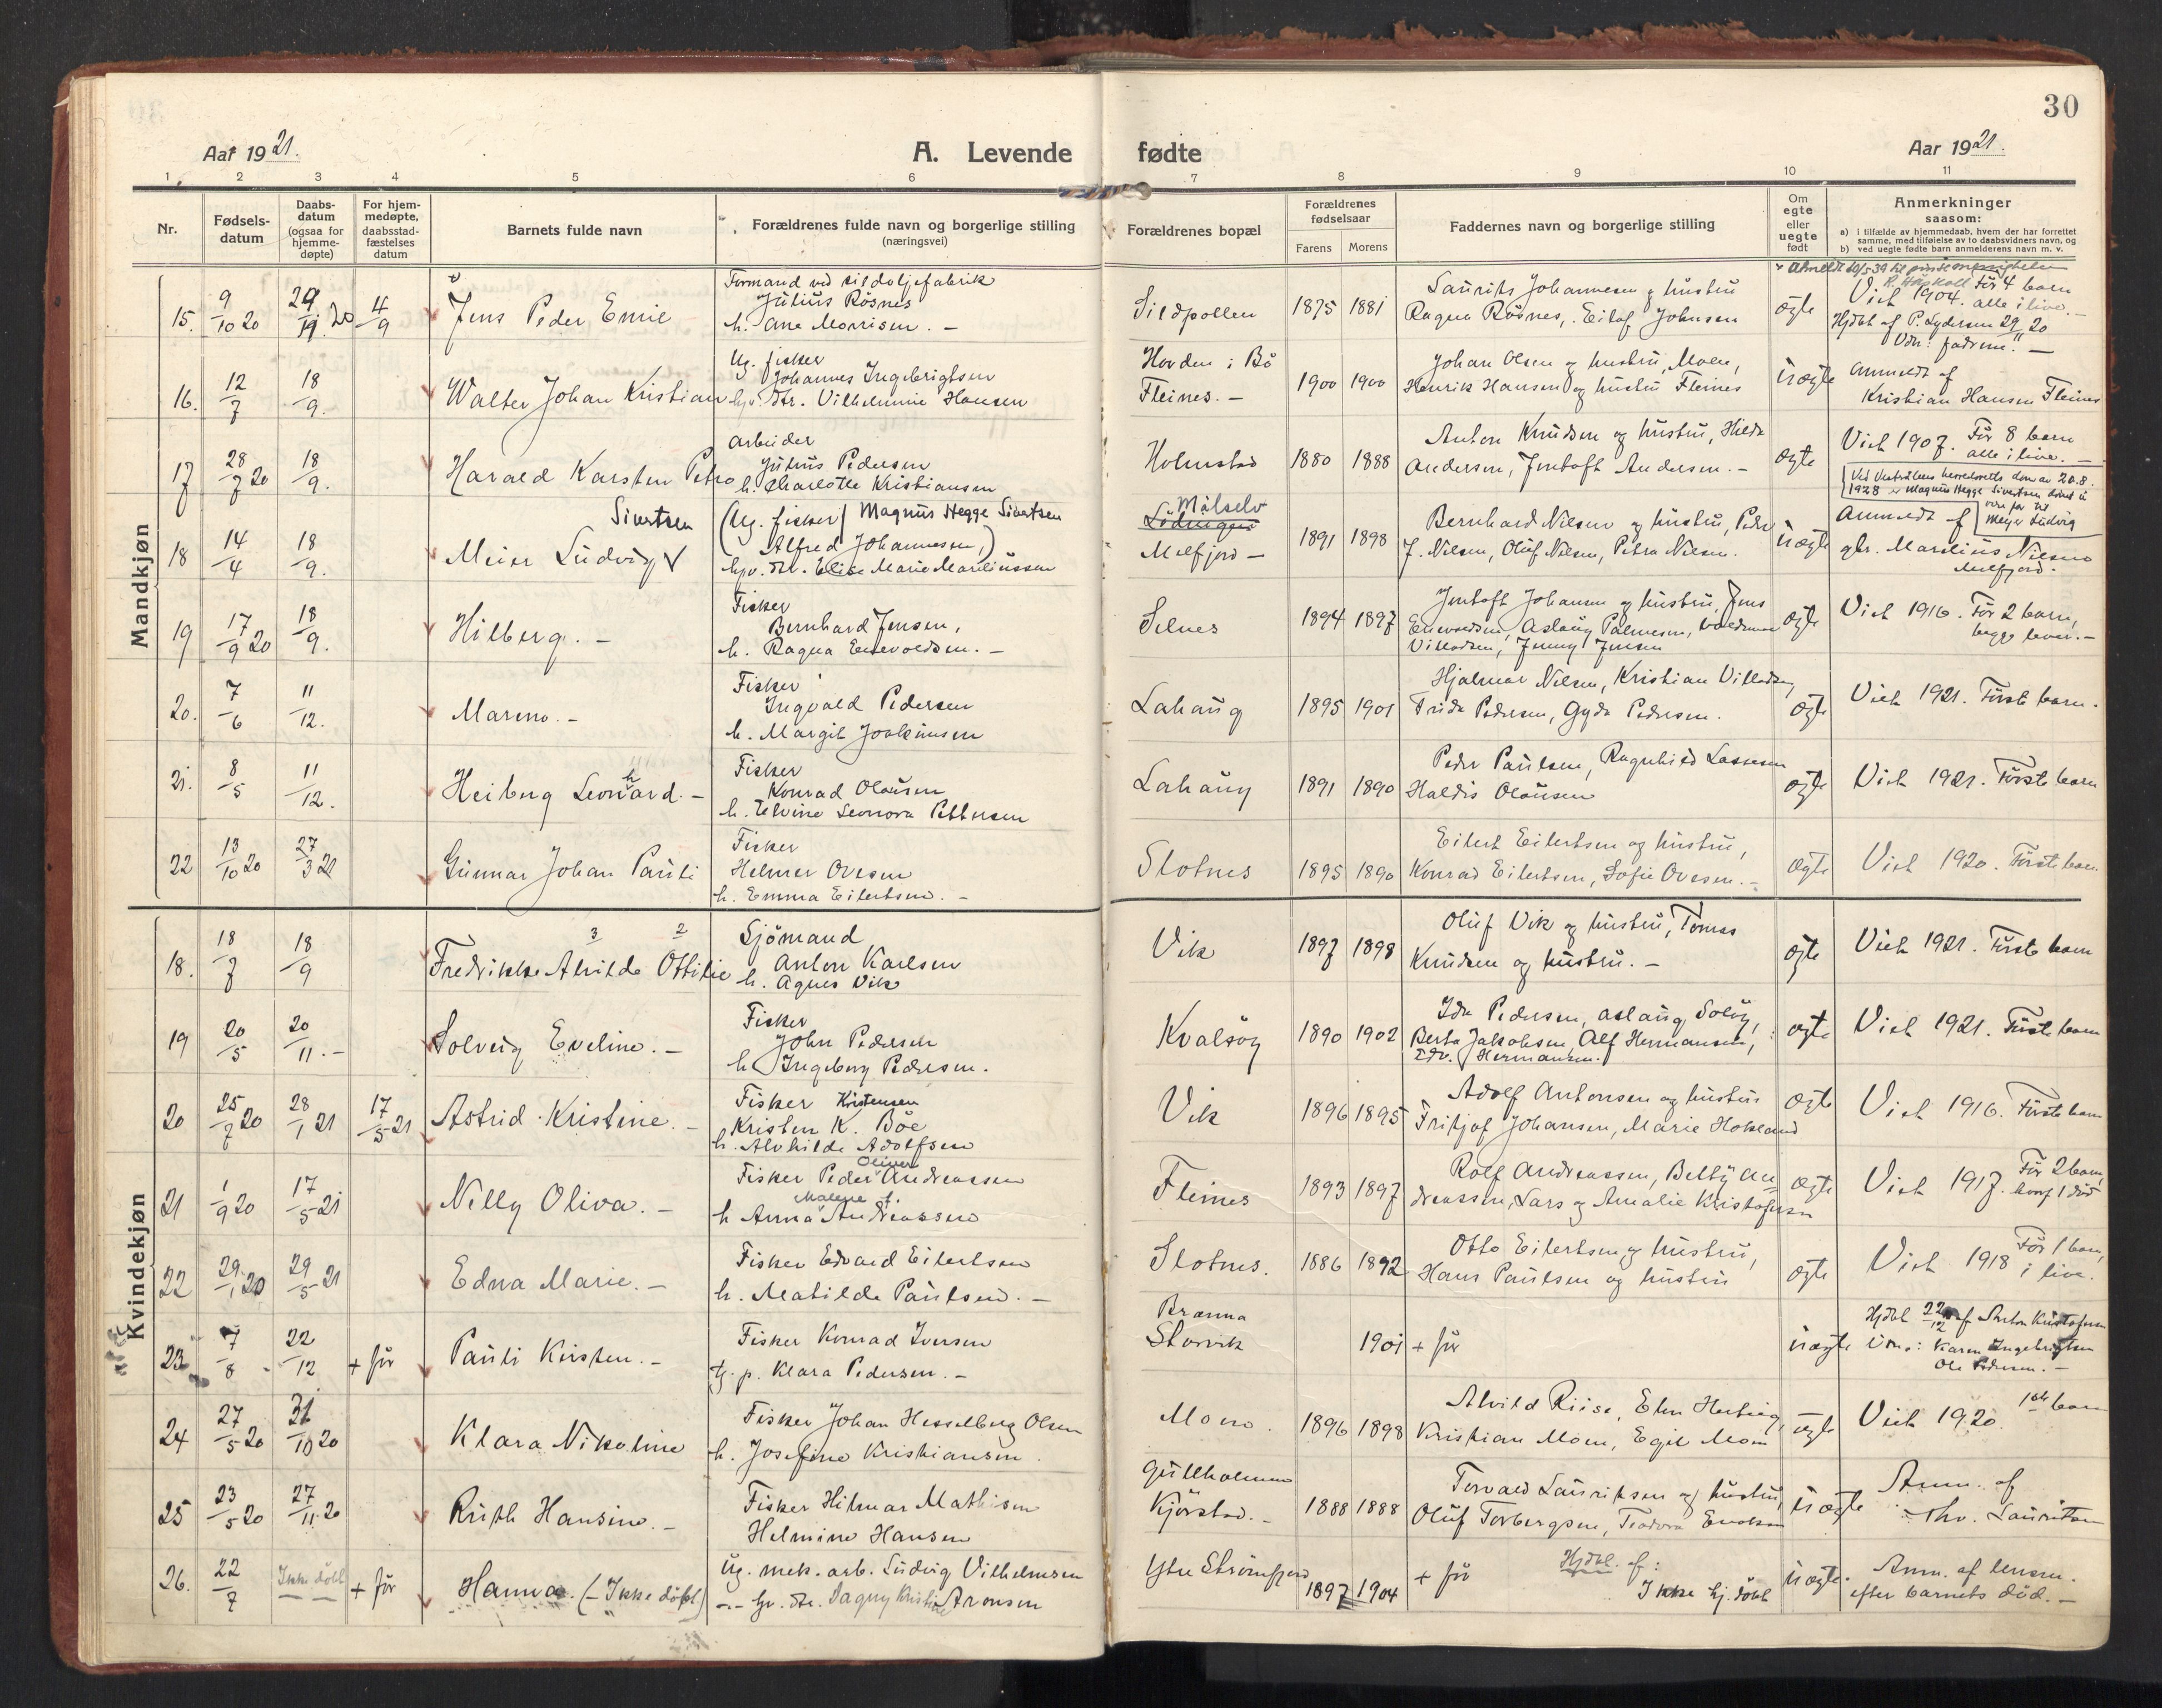 30
Aar 1921.
A. Levende fødte
Aar 1921.
1 2 3 4 5 6 7 8 9 10 11
Nr.
Fødsels-
datum
Daabs-
datum
(ogsaa for
hjemme-
døpte)
For hjem-
medøpte,
daabsstad-
fæstelses
datum
Barnets fulde navn
Forældrenes fulde navn og borgerlige stilling
(næringsvei)
Forældrenes bopæl
Forældrenes
fødselsaar
Farens
Morens
Faddernes navn og borgerlige stilling
Om
egte
eller
uegte
født
Anmerkninger
saasom:
a) i tilfælde av hjemmedaab, hvem der har forrettet
samme, med tilføielse av to daabsvidners navn, og
b) ved uegte fødte barn anmelderens navn m. v.
Mandkjøn
15. 9/10 20 29/11 20 4/9 Jens Peder Emil
Formand ved sildoljefabrik
Julius Rösnes
h. Ane Monsen. –
Sildpollen 1875 1881
Laurits Johannesen og hustru
Ragna Rösnes, Eilof Johnsen
ægte
Viet 1904. Før 4 barn
alle i live.
Hjdbt af P. Lydersen 29/11 20
Vdn: fadrene. –
16. 12/7 18/9. Walter Johan Kristian
Ug. fisker
Johannes Ingebrigtsen
Vilhelmine Hansen
Hovden i Bö
Fleines. – 1900 1900
Johan Olsen og hustru, Moen,
Henrik Hansen og hustru Fleines
uægte
Anmeldt af
Kristian Hansen Fleines
17 28/7 20 18/9. Harald Karsten Petro
Arbeider
Julius Pedersen
h. Charlotte Kristiansen
Holmstad 1880 1888
Anton Knudsen og hustru, Hilda
Andersen, Jentoft Andersen. –
ægte
Viet 1907. Før 8 barn
alle i live. –
18 14/4 18/9. Sivertsen
Meier Ludvig
(Ug. fisker) Magnus Hegge Sivertsen
Alfred Johannessen,)
Elise Marie Mareliussen
Målselv
Lödingen
Melfjord – 1891 1898
Bernhard Nilsen og hustru, Peder
J. Nilsen, Oluf Nilsen, Petra Nilsen.
uægte
Ved Vesterålens herredsretts dom av 20.8.
1928 er Magnus Hegge Sivertsen dömt å
være far til
Meyer Ludvig
Anmeldt af
gbr. Marelius Nilsen
Melfjord.
19 17/9 20 18/9. Hilberg. –
Fisker
Bernhard Jensen,
h. Ragna Enevoldsen. –
Selnes 1894 1897
Jentoft Johansen og hustru, Jens
Enevoldsen, Aslaug Palmesen,
Villadsen, Jenny Jensen
ægte
Viet 1916. Før 2 barn,
begge lever. –
20. 7/6 11/12. Mareno. –
Fisker
Ingvald Pedersen
h. Margit Joakimsen
Lahaug 1895 1901
Hjalmar Nilsen, Kristian Villadsen,
Frida Pedersen, Gyda Pedersen.
ægte
Viet 1921. Første barn.
21. 8/5 11/12. Heiberg Leonhard. –
Fisker
Konrad Olausen
h. Elvine Leonora Pettersen
Lahaug 1891 1890
Peder Paulsen, Ragnhild Lassesen
Haldis Olausen
ægte
Viet 1921. Første barn
22 13/10 20 27/3 21 Gunnar Johan Pauli
Fisker
Helmer Ovesen
h. Emma Eilertsen. –
Slotnes 1895 1890
Eilert Eilertsen og hustru,
Konrad Eilertsen, Sofie Ovesen. –
ægte
Viet 1920. Første barn.
Kvindekjøn
18. 18/7 18/9 3 2
Fredrikke Alvilde Ottilie
Sjömand
Anton Karlsen
h. Agnes Vik
Vik 1897 1898
Oluf Vik og hustru, Tomas
Knudsen og hustru. –
ægte
Viet 1921. Første barn
19 20/5 20/11. – Solveig Eveline. –
Fisker
John Pedersen
h. Ingeborg Pedersen.
Kvalsöy 1890 1902
Ida Pedersen, Aslaug Solöy,
Berta Jakobsen, Alf Hermansen,
Edv. Hermansen.
ægte
Viet 1921. Første barn
20 25/7 20 28/1 21 17/5 21 Astrid Kristine. –
Fisker Kristensen
Kristen K. Böe
h. Alvhilde Adolfsen
Vik 1896 1895
Adolf Antonsen og hustru
Fritjof Johansen, Marie Hokland
ægte
Viet 1916. Første barn
21 1/9 20 17/5 21 Nelly Oliva. –
Fisker Peder Oliver Andreassen
Malene f.
h Anna Andreassen
Fleines 1893 1897
Rolf Andreassen, Betty An-
dreassen, Lars og Amalie Kristofersen
ægte
Viet 1917. Før 2 barn,
hvoraf 1 död
22 29/1 20 29/5 21 Edna Marie. –
Fisker Edvard Eilertsen
h. Matilde Paulsen. –
Slotnes. 1886 1892
Otto Eilertsen og hustru,
Hans Paulsen og hustru
ægte
Viet 1918 Før 1 barn,
i live.
23 7/8 22/12 + før Pauli Kirsten. –
Fisker Konrad Iversen
tj. p. Klara Pedersen. –
Brenna
Storvik 1901
+ før
uægte
Hjdbt 22/12 af Anton Kristofersen
Vdn.: Karen Ingebrigtsen
Ole Pedersen. –
24 27/5 20 31/10 20 Klara Nikoline
Fisker Johan Hesselberg Olsen
h. Josefine Kristiansen.
Moen. 1896 1898
Alvild Riise, Elen Hertvig,
Kristian Moen, Egil Moen
ægte
Viet 1920. 1ste barn
25 23/5 20 27/11 20 Ruth Hansine. –
Fisker Hilmar Mathisen
Helmine Hansen
Gullholmen
Kjörstad. – 1888 1888
Torvald Lauritsen og hustru,
Oluf Torbergsen, Teodora
uægte
Anm. af
Thv. Lauritsen
26. 22/7 Ikke döbt + før Hanna. (– Ikke döbt)
Ug. mek. arb. Ludvig Vilhelmsen
Dagny Kristine Aronsen
Ytre Strömfjord 1897 1904
+ før Hjdbt. af:
Ikke hj. döbt
uægte.
Anm. af lensm.
efter barnets död. –